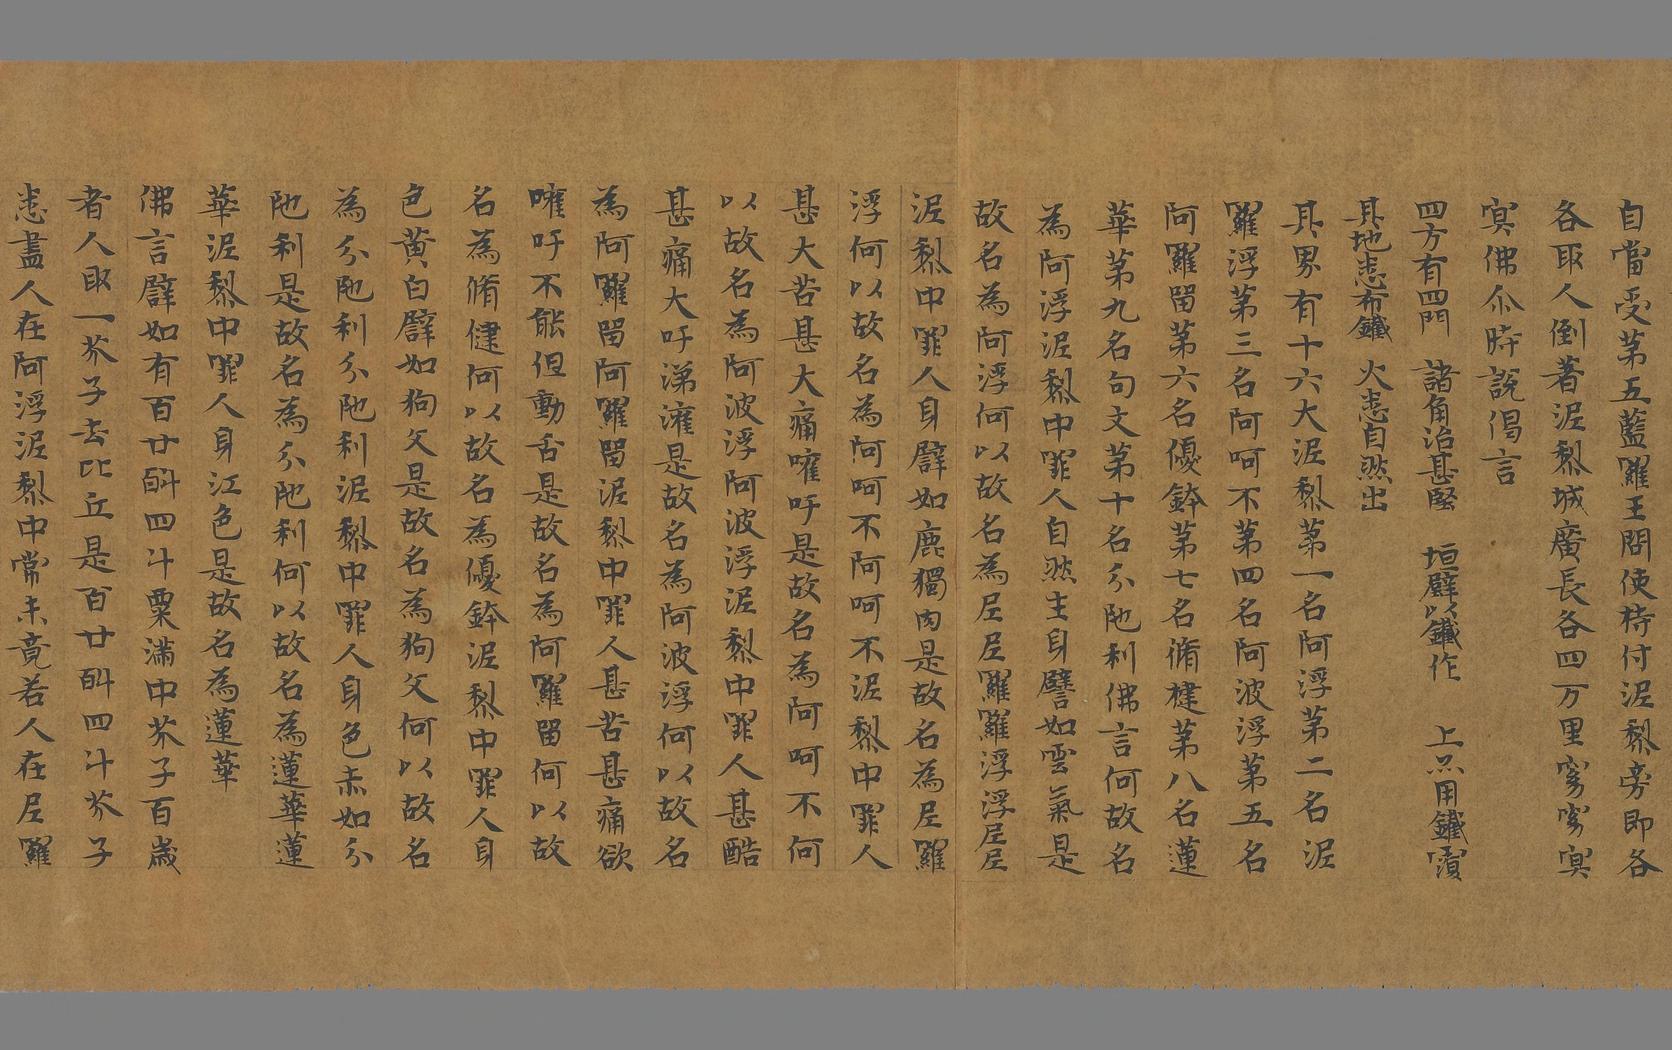 自當受第五藍羅王問使持付泥犁旁即各
各取人倒著泥犁城廣長各四万里窈窈冥
冥佛尒時說偈言
四方有四門　諸角治甚堅　垣壁以鐵作　上亦用鐵覆
其地悉布鐵　火悉自然出
其界有十六大泥犁第一名阿浮第二名泥
羅浮第三名阿呵不第四名阿波浮第五名
阿羅留第六名優鉢第七名脩揵第八名蓮
華第九名句文第十名分陁利佛言何故名
為阿浮泥犁中罪人自然生身譬如雲氣是
故名為阿浮何以故名為尼尼羅羅浮浮尼尼
泥犁中罪人身譬如鹿獨肉是故名為尼羅
浮何以故名為阿呵不阿呵不泥犁中罪人
甚大苦甚大痛嚾呼是故名為阿呵不何
以故名為阿波浮阿波浮泥犁中罪人甚酷
甚痛大呼涕濩是故名為阿波浮何以故名
為阿羅留阿羅留泥犁中罪人甚苦甚痛欲
嚾呼不能但動舌是故名為阿羅留何以故
名為脩健何以故名為優鉢泥犁中罪人身
色黄白譬如狗父是故名為狗父何以故名
為分陁利分陁利泥犁中罪人身色赤如分
陁利是故名為分陁利何以故名為蓮華蓮
華泥犁中罪人身江色是故名為蓮華
佛言譬如有百廿斛四斗粟滿中芥子百歲
者人取一芥子去比丘是百廿斛四斗芥子
悉盡人在阿浮泥犁中常未竟若人在尼羅